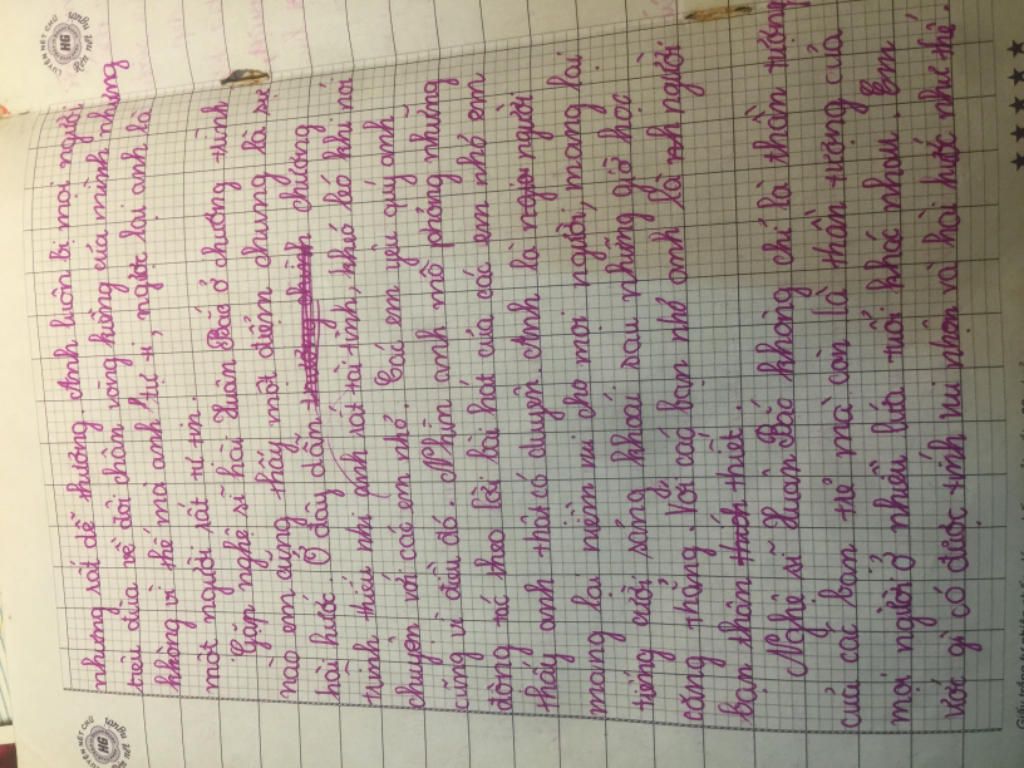 nhưng rất dễ thương. Anh luôn bị mọi người
trêu đùa về đôi chân vòng kiềng của mình nhưng
không vì thế mà anh tự ti, ngược lại anh là
một người rất tự tin.
Gặp nghệ sĩ hài Xuân Bắc ở chương trình
nào em cũng thấy một điểm chung là sự
hài hước. Ở đây dẫn chương
trình thiếu nhi anh rất tài tình, khéo léo khi nói
chuyện với các em nhỏ. Các em yêu quý anh
cũng vì điều đó. Nhìn anh mô phỏng những
động tác theo lời bài hát của các em nhỏ em
thấy anh thật có duyên. Anh là người người
mang lại niềm vui cho mọi người, mang lại
tiếng cười sảng khoái sau những giờ học
căng thẳng. Với các bạn nhỏ anh là người
bạn thân thiết.
Nghệ sĩ Xuân Bắc không chỉ là thần tượng
của các bạn trẻ mà còn là thần tượng của
mọi người ở nhiều lứa tuổi khác nhau. Em
ước gì có được tính vui nhộn và hài hước như thế.
LUYỆN NÉT CHỮ
HG
RÈN NẾT
LUYỆN NÉT CHỮ
HG